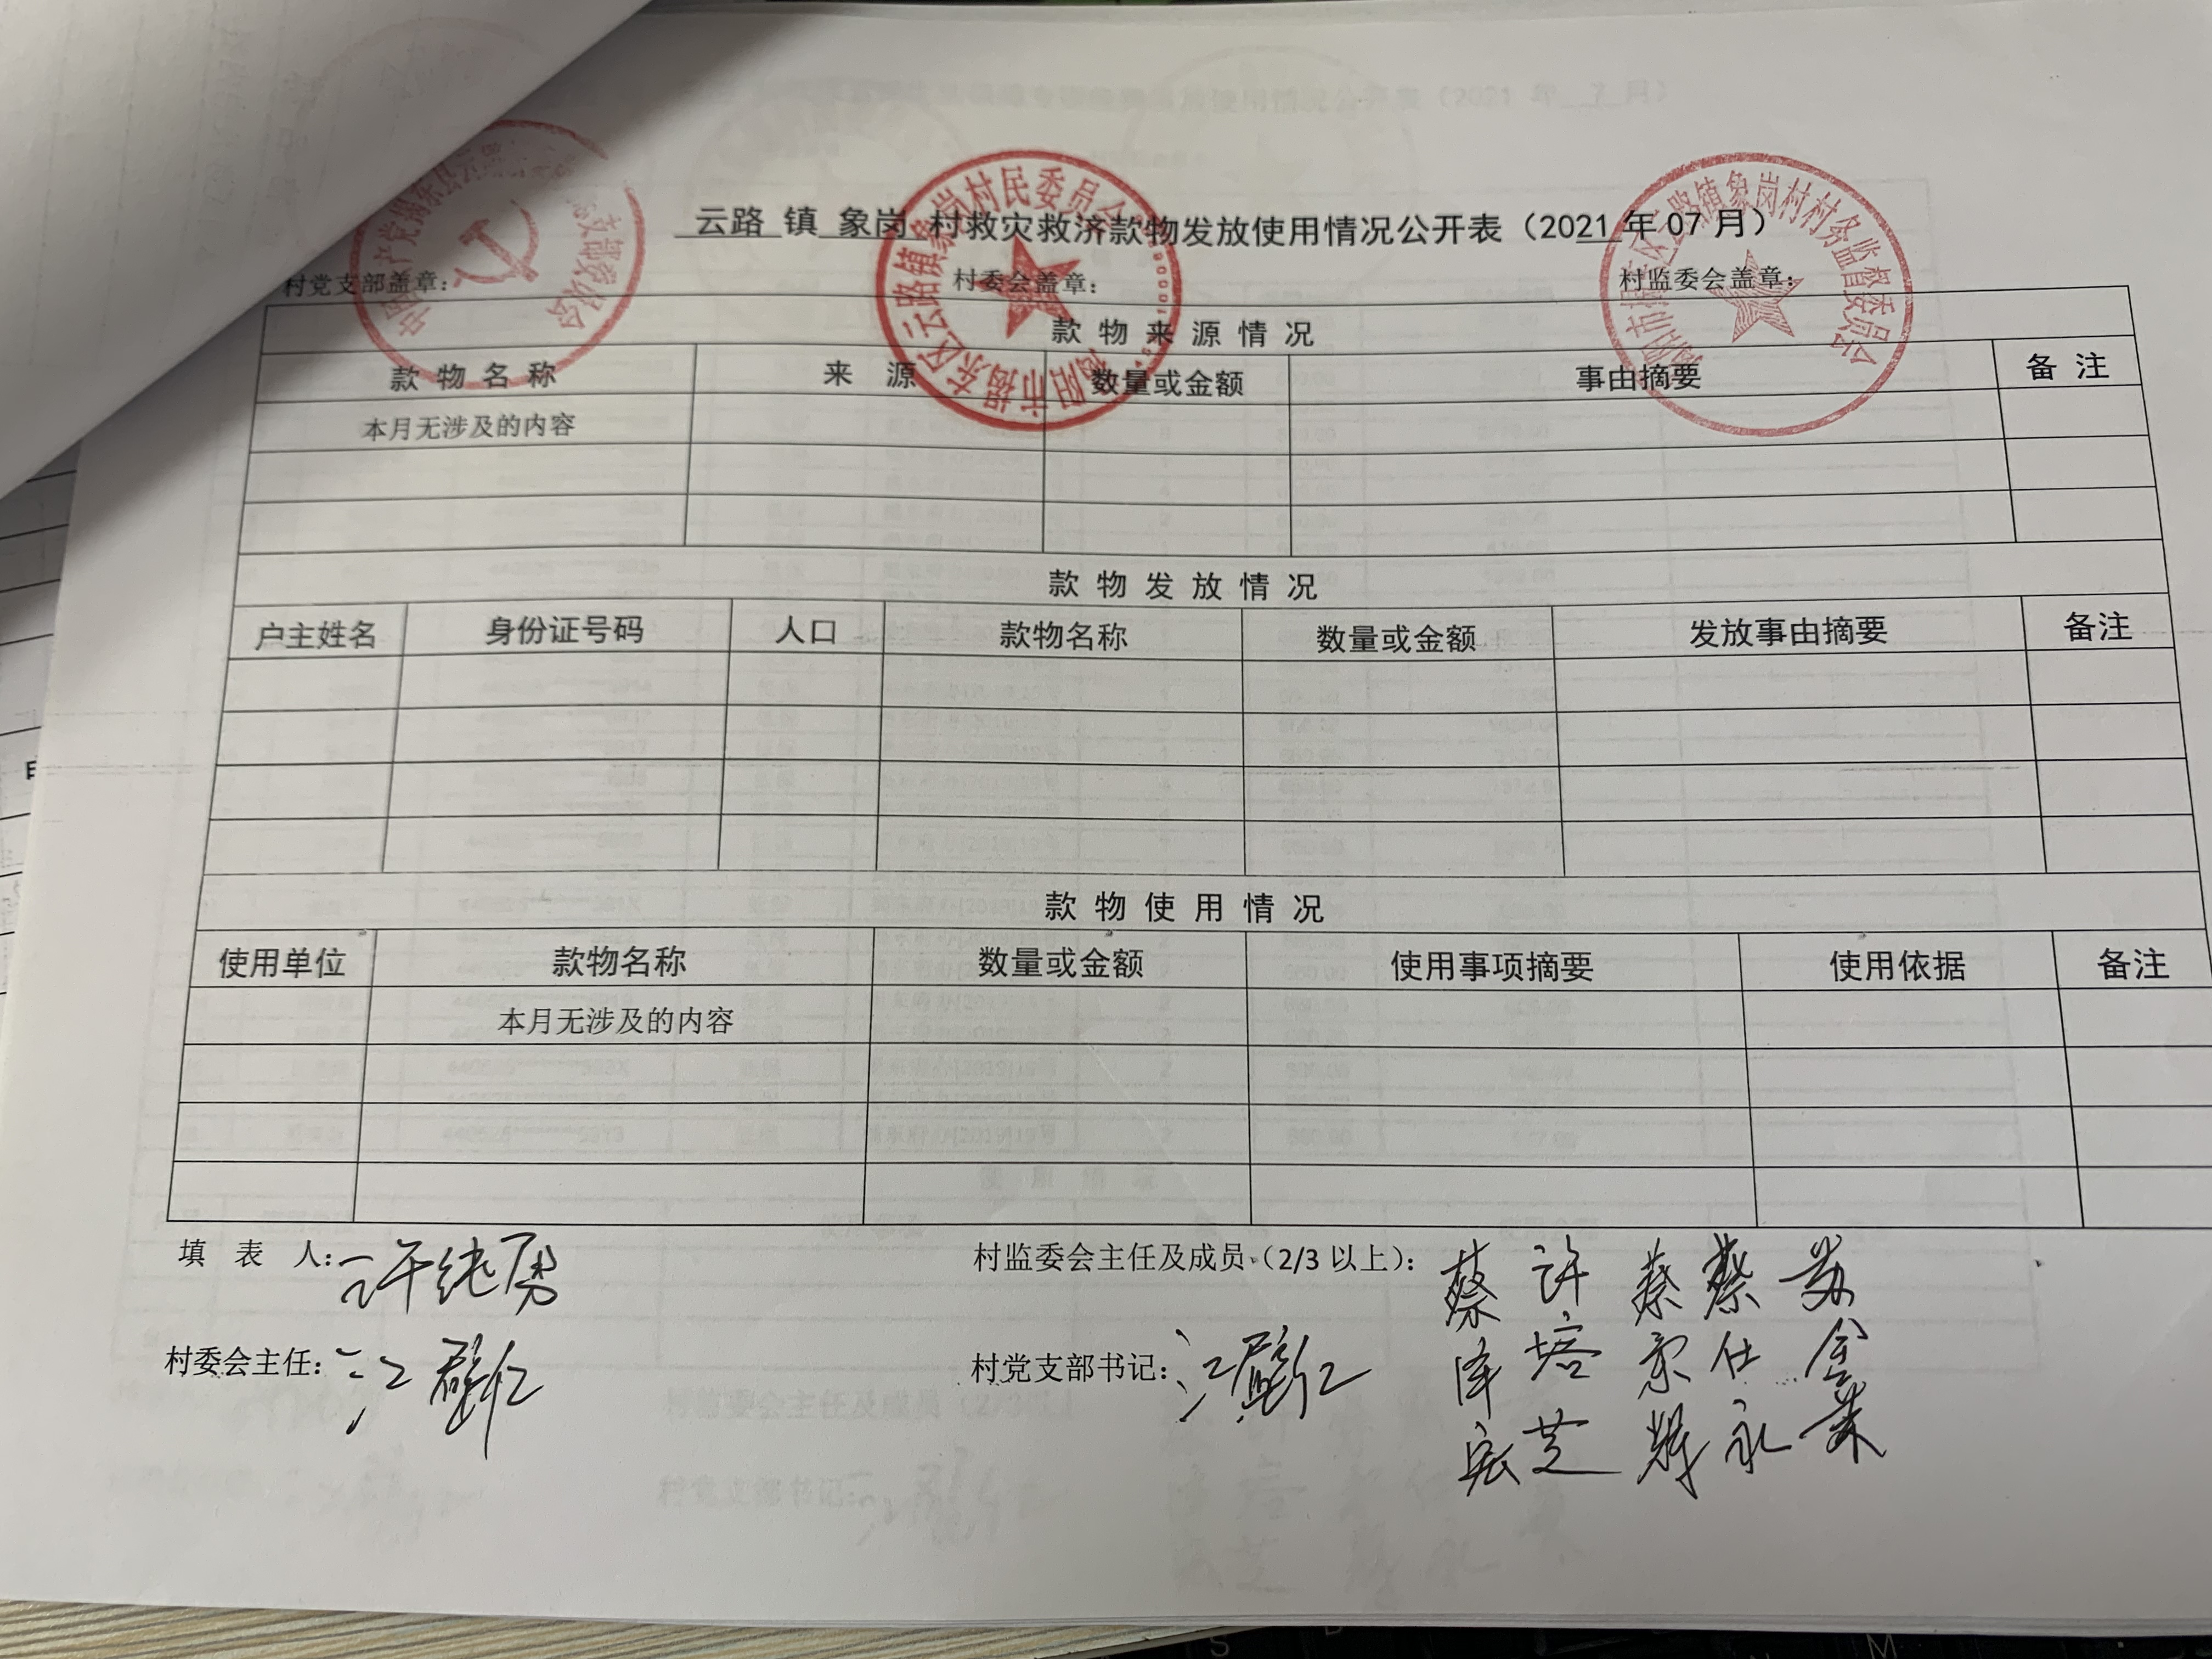 云路 镇 象岗 村救灾救济款物发放使用情况公开表（2021 年 07 月）
村党支部盖章： 村委会盖章： 村监委会盖章：
款 物 来 源 情 况
款 物 名 称 来 源 数量或金额 事由摘要 备 注
本月无涉及的内容
款 物 发 放 情 况
户主姓名 身份证号码 人口 款物名称 数量或金额 发放事由摘要 备注
款 物 使 用 情 况
使用单位 款物名称 数量或金额 使用事项摘要 使用依据 备注
本月无涉及的内容
填 表 人：许纯勇 村监委会主任及成员（2/3 以上）：
蔡 许 蔡 蔡 苏
泽 培
宏 芝
村委会主任：江 村党支部书记：江
揭阳市揭东区云路镇象岗村民委员会
揭阳市揭东区云路镇象岗村村务监督委员会